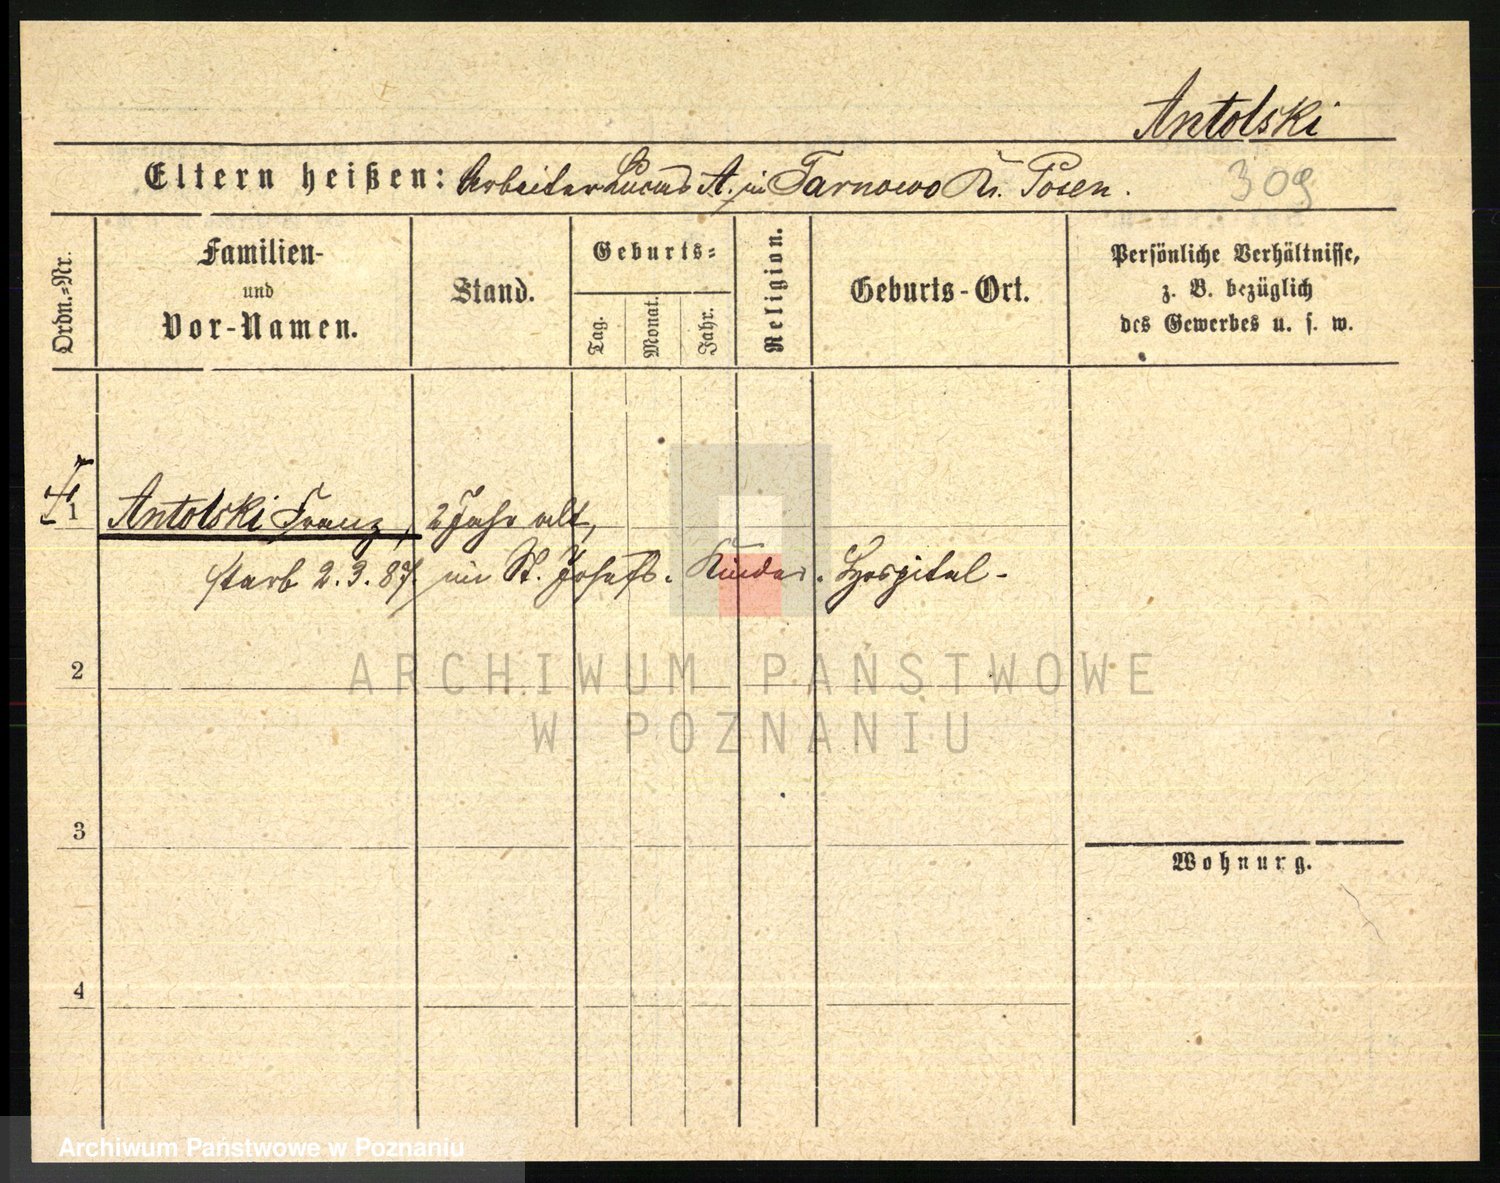 Antolski
Eltern heißen: Arbeiter Lucas A. in Tarnowo Kr. Posen.
309
Ordn.-Nr.
Familien-
und
Vor-Namen.
Stand.
Geburts-
Tag.
Monat.
Jahr.
Religion.
Geburts-Ort.
Persönliche Verhältnisse,
z. B. bezüglich
des Gewerbes u. s. w.
1 Antolski Franz, 2 Jahr alt,
starb 2. 3. 87 im St. Josefs-Kinder-Hospital-
2
3
4
Wohnung.
ARCHIWUM PAŃSTWOWE
W POZNANIU
Archiwum Państwowe w Poznaniu